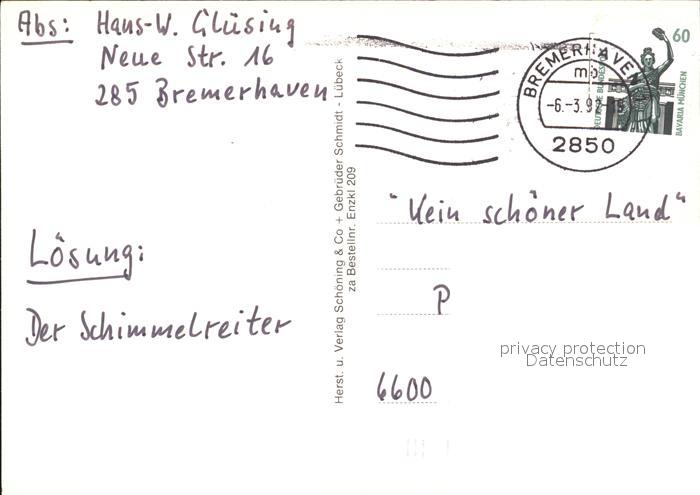 Abs: Hans-W. Glüsing
Neue Str. 16
285 Bremerhaven
Lösung:
Der Schimmelreiter
Herst. u. Verlag Schöning & Co + Gebrüder Schmidt - Lübeck
za Bestellnr. Enzkl 209
BREMERHAVEN
mb
-6.-3.92-
2850
60
DEUTSCHE BUNDESPOST
BAYARIA MÜNCHEN
"Kein schöner Land"
P
privacy protection
Datenschutz
6600